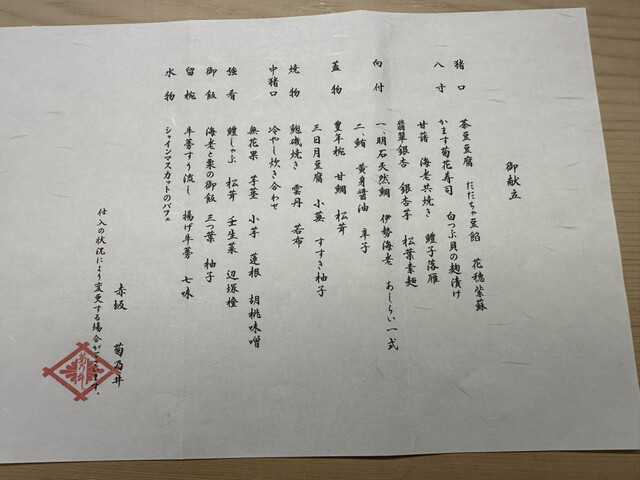 御献立
猪口 茶豆豆腐 だだちゃ豆餡 花穂紫蘇
八寸 かます菊花寿司 白つぶ貝の麹漬け
甘藷 海老共焼き 鱧子落雁
翡翠銀杏 銀杏芋 松葉素麺
向付 一、明石天然鯛 伊勢海老 あしらい一式
二、鮪 黄身醤油 辛子
蓋物 豊年椀 甘鯛 松茸
三日月豆腐 小蕪 すすき柚子
焼物 鮑磯焼き 雲丹 若布
中猪口 冷やし炊き合わせ
無花果 芋茎 小芋 蓮根 胡桃味噌
強肴 鱧しゃぶ 松茸 壬生菜 辺塚橙
御飯 海老と栗の御飯 三つ葉 柚子
留椀 牛蒡すり流し 揚げ牛蒡 七味
水物 シャインマスカットのパフェ
赤坂 菊乃井
仕入の状況により変更する場合がございます。
菊乃井